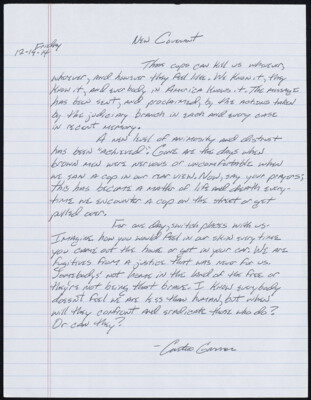 Friday
12-19-14
New Covenant
These cops can kill us whoever,
wherever, and however they feel like. We know it, they
know it, and everybody in America knows it. The message
has been sent, and proclaimed, by the motions taken
by the judiciary branch in each and every case
in recent memory.
A new level of animosity and distrust
has been achieved! Gone are the days when
brown men were nervous or uncomfortable when
we saw a cop in our rear view. Now, say your prayers;
this has become a matter of life and death every-
time we encounter a cop on the street or get
pulled over.
For one day, switch places with us.
Imagine how you would feel in our skin every time
you came out the house or got in your car. We are
fugitives from a justice that was never for us.
Somebody's not home in the land of the free or
they're not being that brave. I know everybody
doesn't feel we are less than human, but when
will they confront and eradicate those who do?
Or can they?